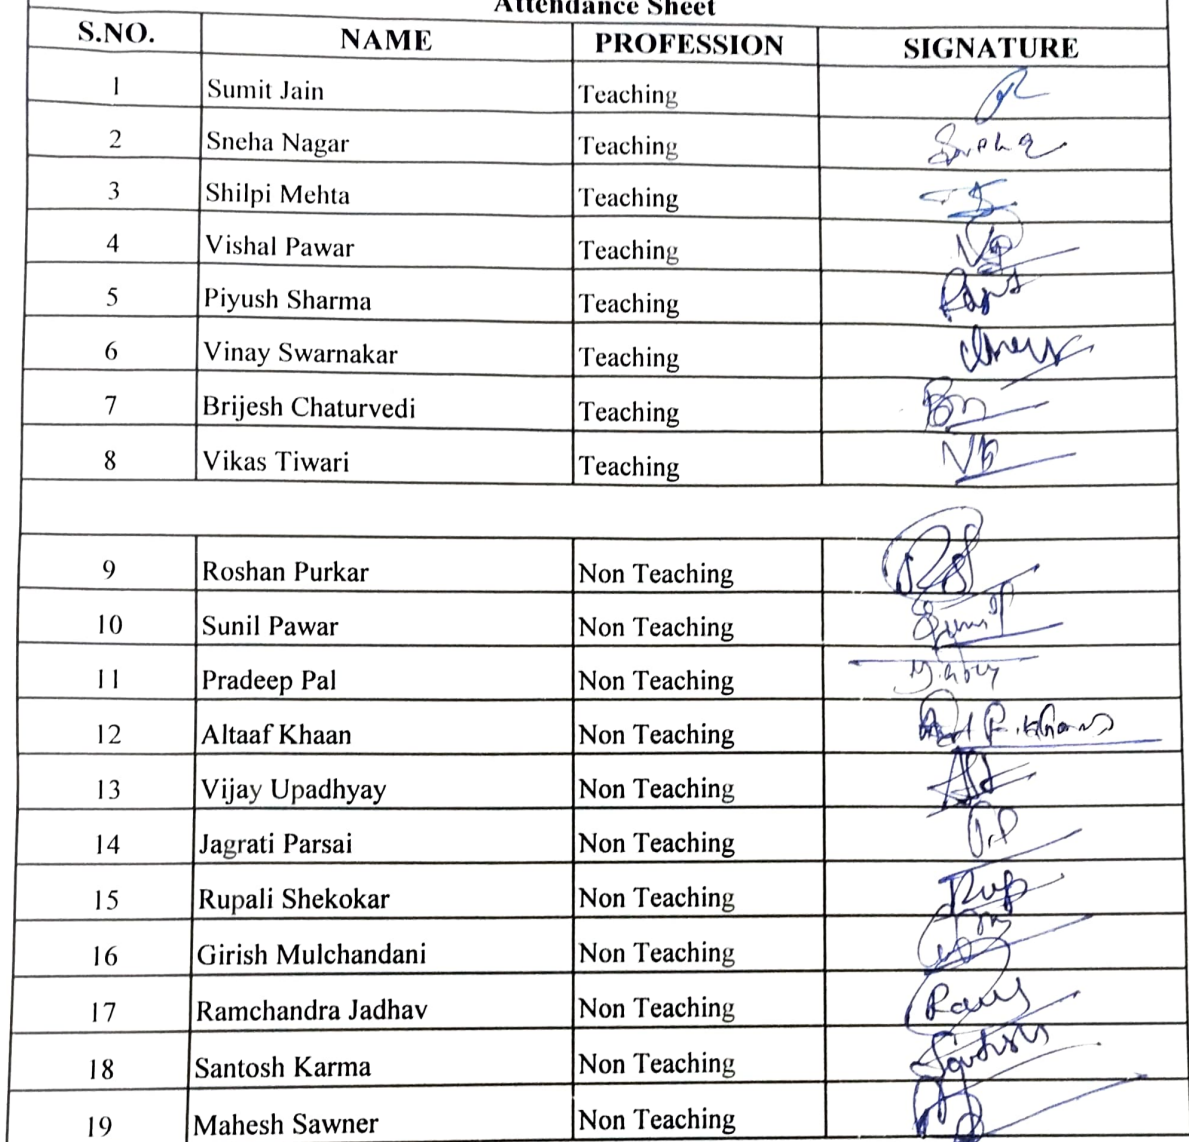 Attendance Sheet
S.NO. NAME PROFESSION SIGNATURE
1 Sumit Jain Teaching
2 Sneha Nagar Teaching
3 Shilpi Mehta Teaching
4 Vishal Pawar Teaching
5 Piyush Sharma Teaching
6 Vinay Swarnakar Teaching
7 Brijesh Chaturvedi Teaching
8 Vikas Tiwari Teaching
9 Roshan Purkar Non Teaching
10 Sunil Pawar Non Teaching
11 Pradeep Pal Non Teaching
12 Altaaf Khaan Non Teaching
13 Vijay Upadhyay Non Teaching
14 Jagrati Parsai Non Teaching
15 Rupali Shekokar Non Teaching
16 Girish Mulchandani Non Teaching
17 Ramchandra Jadhav Non Teaching
18 Santosh Karma Non Teaching
19 Mahesh Sawner Non Teaching